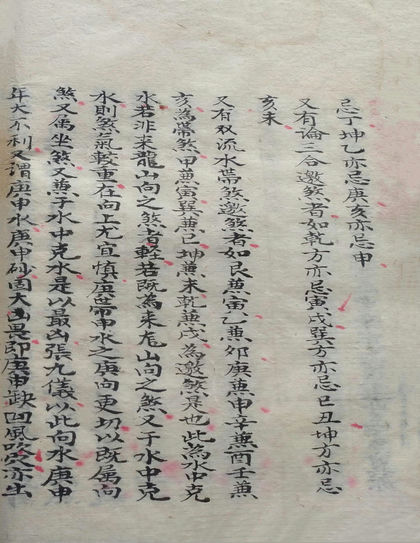 忌丁坤乙亦忌庚亥亦忌申
又有論三合邀煞者如乾方亦忌寅戌巽方亦忌巳丑坤方亦忌
亥未
又有双流水帶煞邀煞者如艮蕪寅乙蕪卯庚蕪申辛蕪酉壬蕪
亥為帶煞甲蕪寅巽蕪巳坤蕪未乾蕪戌為邀煞是也此為水中克
水若非来龍山向之煞者輕若既為来龙山向之煞又于水中克
水則煞氣較重在向上尤宜慎庚帶申水之庚向更切以既属向
煞又属坐煞又蕪于水中克水是以最凶張九儀以此向水庚申
年大不利又謂庚申水庚申砂固大凶畏即庚申缺凹風路亦主